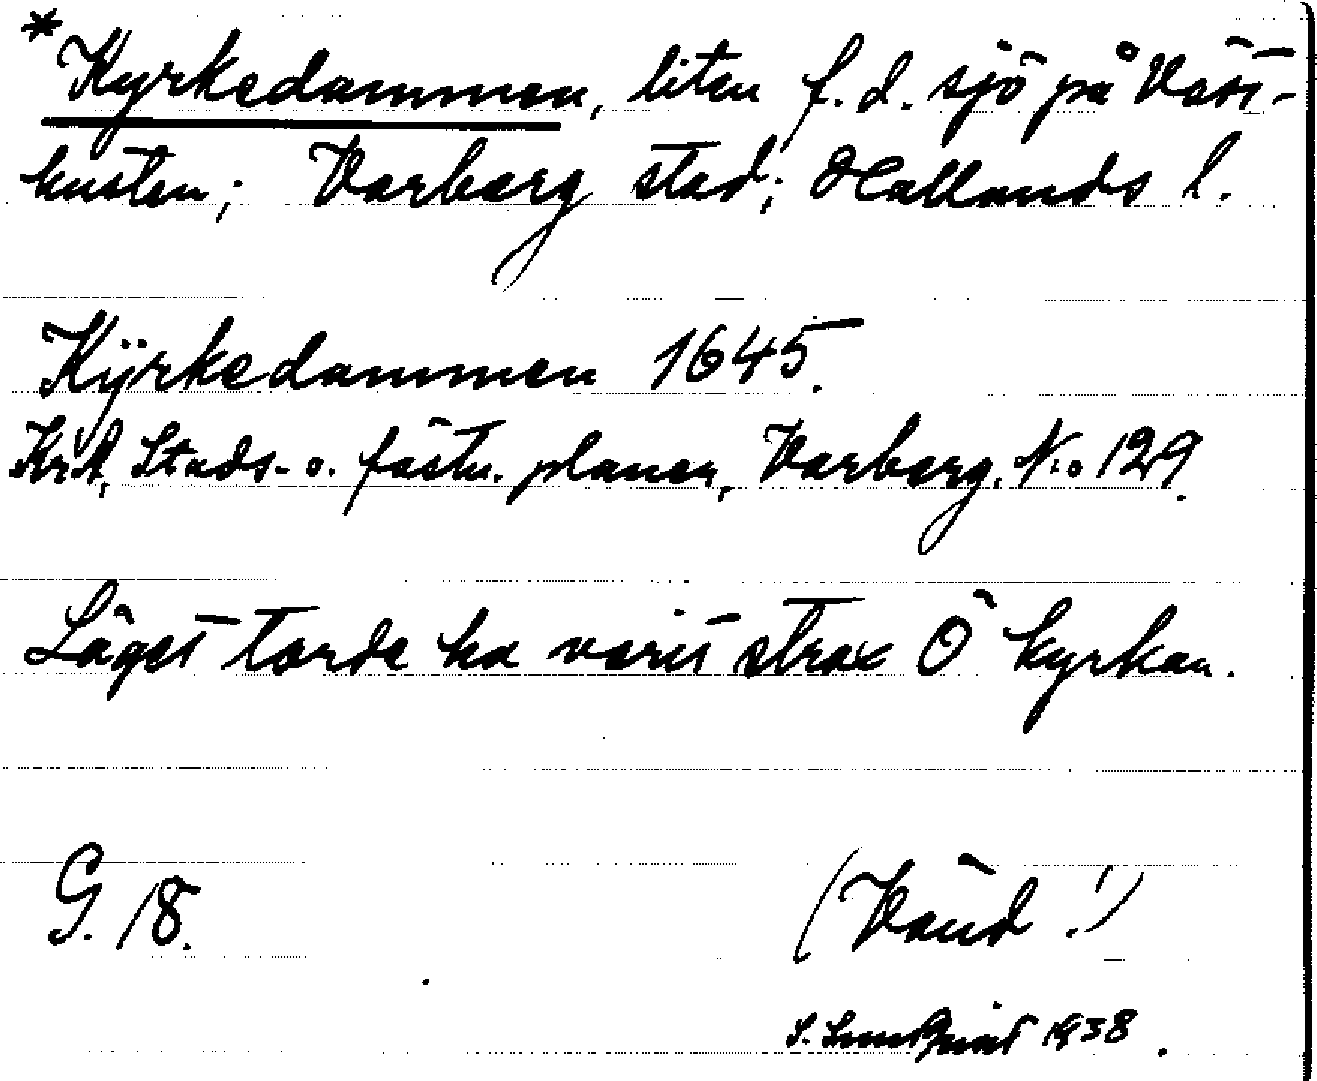 *Kyrkedammen, liten f.d. sjö på Väst-
kusten; Varberg stad; Hallands l.
Kÿrkedammen 1645.
KrA, Stads- o. fästn. planer, Varberg. No 129.
Läget torde ha varit strax Ö kyrkan.
G. 18.
(Vänd!)
S. 1938.